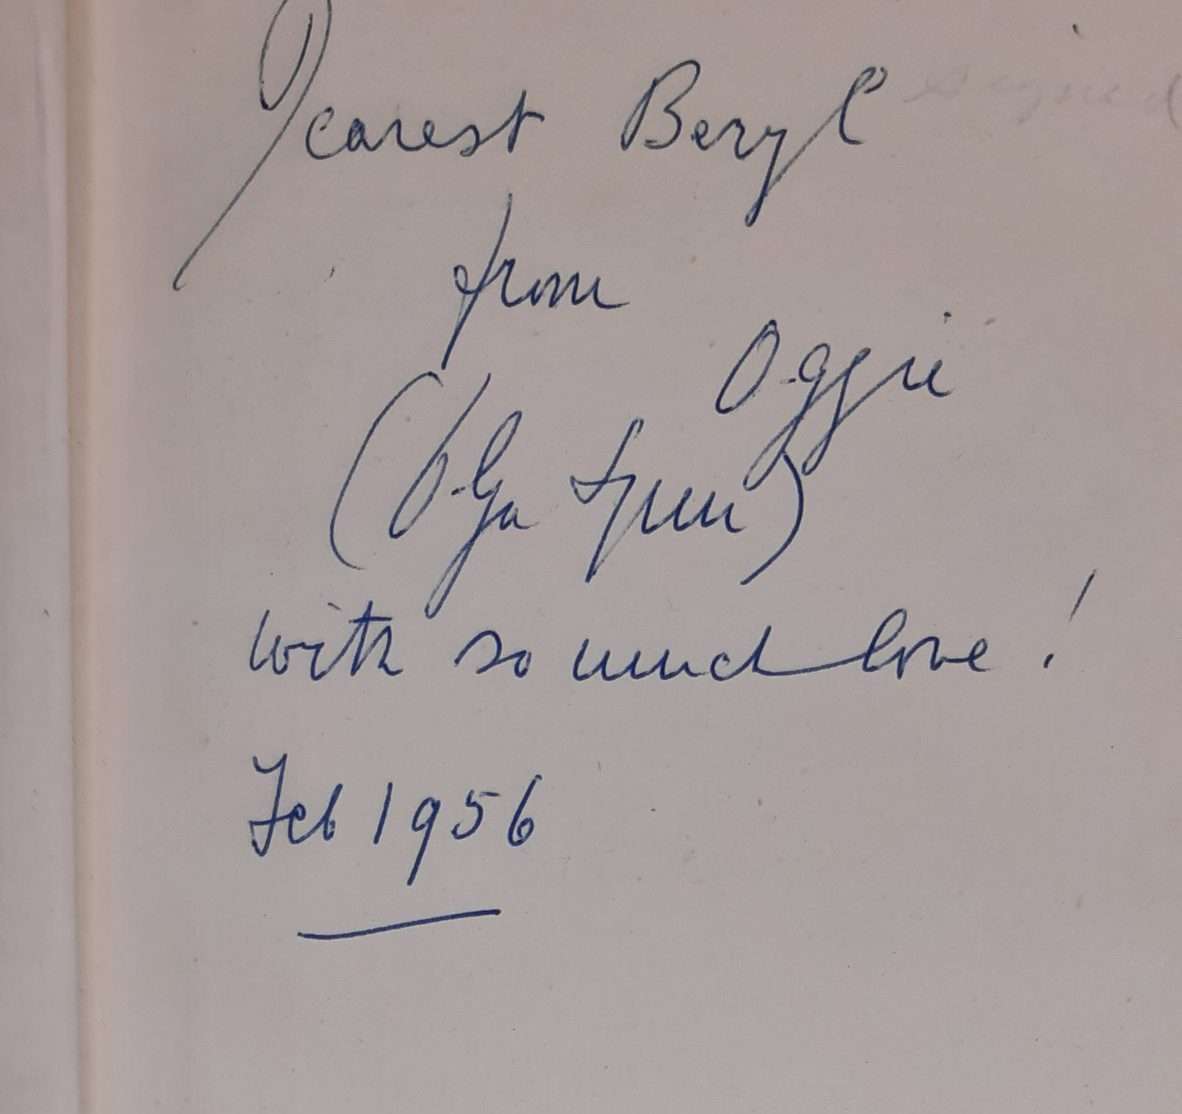 Dearest Beryl
signed
from
Oggie
(Olga Lynn)
with so much love!
Feb 1956